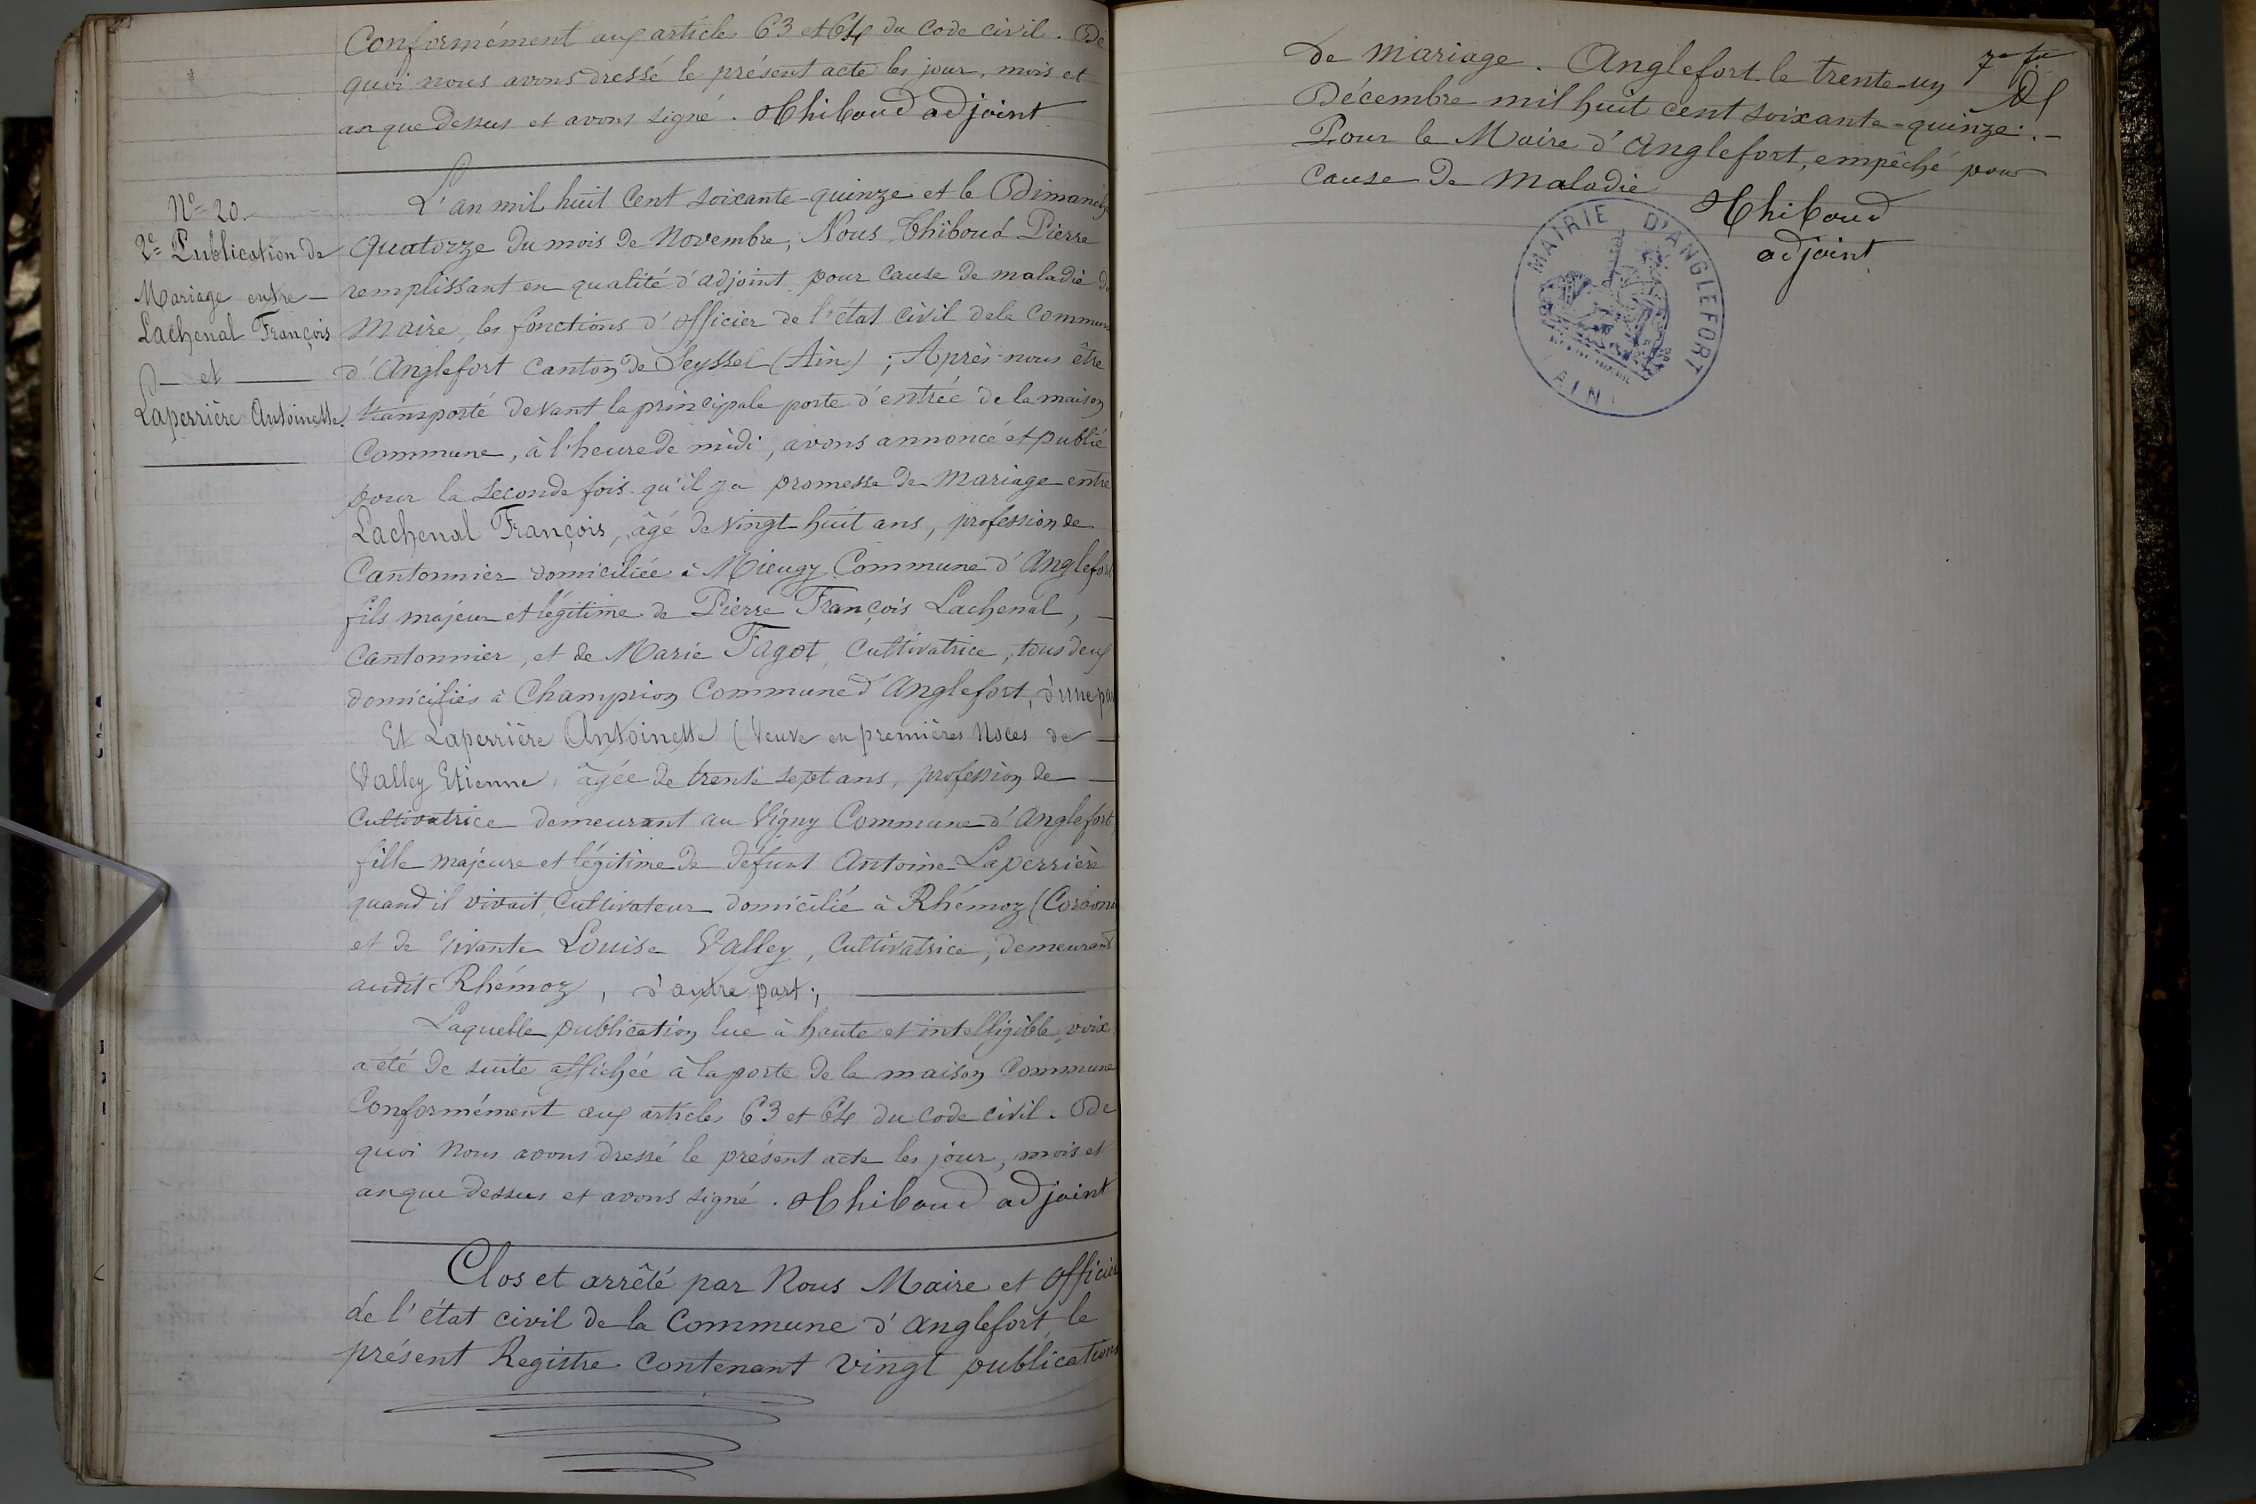 Conformément aux article 63 et 64 du Code civil. De
quoi nous avons dressé le présent acte les jour, mois et
an que dessus et avons signé. Thiboud adjoint
Nº 20.
2e Publication de
Mariage entre
Lachenal François
et
Laperrière Antoinette.
L'an mil huit cent soixante-quinze et le Dimanche
quatorze du mois de Novembre, Nous Thiboud Pierre
remplissant en qualité d'adjoint pour cause de maladie du
Maire, les fonctions d'officier de l'état civil de la Commune
d'Anglefort Canton de Seyssel (Ain) ; Après nous être
transporté devant la principale porte d'entrée de la maison
Commune, à l'heure de midi, avons annoncé et publié
pour la seconde fois qu'il y a promesse de Mariage entre
Lachenal François, âgé de vingt-huit ans, profession de
Cantonnier domiciliée à Mieugy Commune d'Anglefort
fils majeur et légitime de Pierre François Lachenal,
Cantonnier, et de Marie Fagot, Cultivatrice, tous deux
domiciliés à Champrion Commune d'Anglefort, d'une part
Et Laperrière Antoinette (Veuve en premières Noces de
Valley Etienne, âgée de trente sept ans, profession de
Cultivatrice demeurant au Vigny Commune d'Anglefort
fille majeure et légitime de défunt Antoine Laperrière
quand il vivait, Cultivateur domicilié à Rhémoz (Corbonod
et de vivante Louise Valley, Cultivatrice, demeurant
audit Rhémoz, d'autre part ;
Laquelle publication lue à haute et intelligible voix
a été de suite affichée à la porte de la maison Commune
Conformément aux article 63 et 64 du Code civil. De
quoi Nous avons dressé le présent acte les jour, mois et
an que dessus et avons signé. Thiboud adjoint
Clos et arrêté par Nous Maire et Officier
de l'état civil de la Commune d'Anglefort le
présent Registre contenant vingt publications
de Mariage. Anglefort le trente-un
Décembre mil huit cent soixante-quinze.
Pour le Maire d'Anglefort, empêché pour
cause de maladie
Thiboud
adjoint
MAIRIE D'ANGLEFORT
AIN